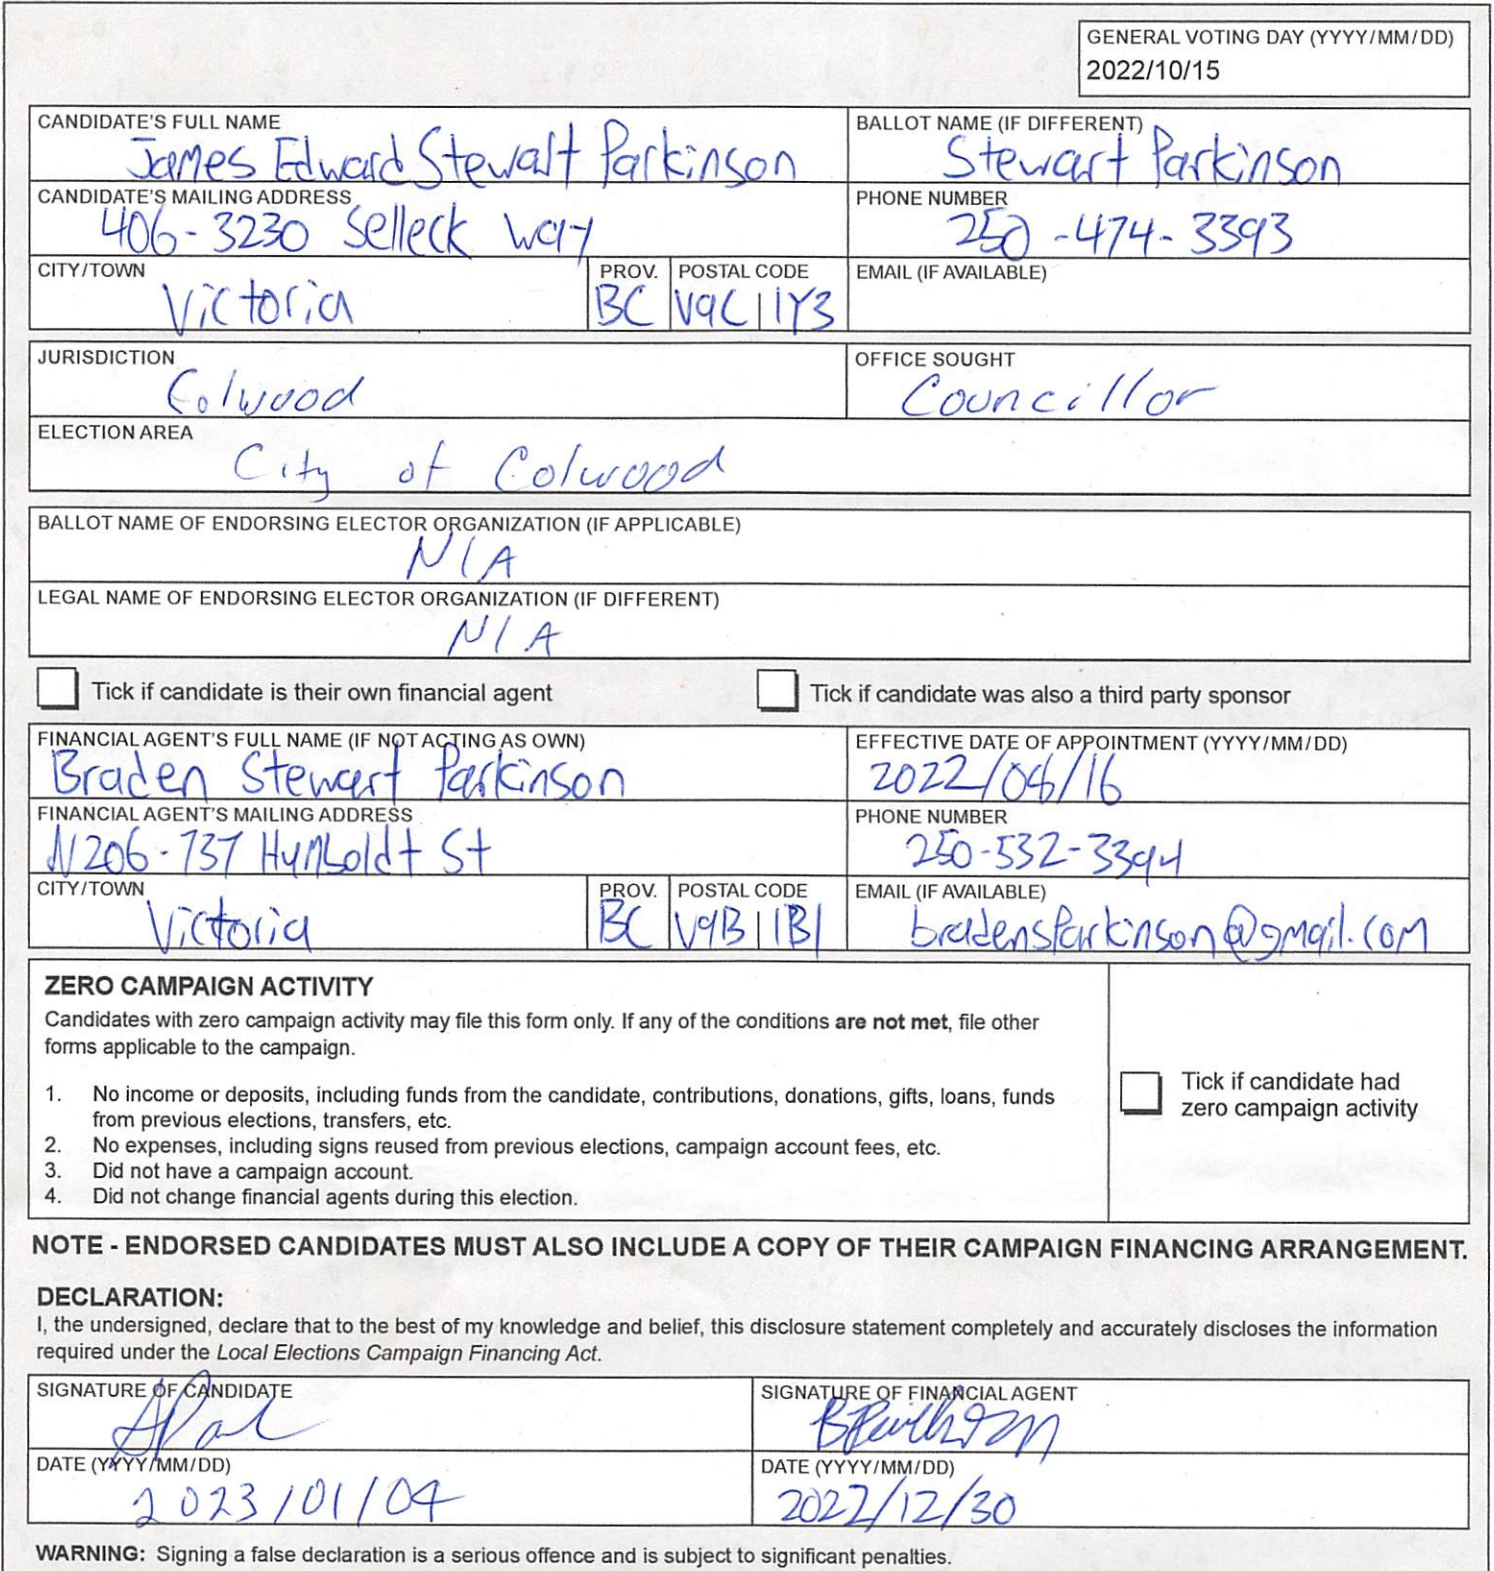 GENERAL VOTING DAY (YYYY/MM/DD)
2022/10/15
CANDIDATE'S FULL NAME
James Edward Stewart Parkinson
BALLOT NAME (IF DIFFERENT)
Stewart Parkinson
CANDIDATE'S MAILING ADDRESS
406-3230 Selleck Way
PHONE NUMBER
250-474-3393
CITY/TOWN
Victoria
PROV.
BC
POSTAL CODE
V9C 1Y3
EMAIL (IF AVAILABLE)
JURISDICTION
Colwood
OFFICE SOUGHT
Councillor
ELECTION AREA
City of Colwood
BALLOT NAME OF ENDORSING ELECTOR ORGANIZATION (IF APPLICABLE)
N/A
LEGAL NAME OF ENDORSING ELECTOR ORGANIZATION (IF DIFFERENT)
N/A
Tick if candidate is their own financial agent
Tick if candidate was also a third party sponsor
FINANCIAL AGENT'S FULL NAME (IF NOT ACTING AS OWN)
Braden Stewart Parkinson
EFFECTIVE DATE OF APPOINTMENT (YYYY/MM/DD)
FINANCIAL AGENT'S MAILING ADDRESS
N206-737 Humboldt St
PHONE NUMBER
250-532-3394
CITY/TOWN
Victoria
PROV.
BC
POSTAL CODE
V9B 1B1
EMAIL (IF AVAILABLE)
bradensparkinson@gmail.com
ZERO CAMPAIGN ACTIVITY
Candidates with zero campaign activity may file this form only. If any of the conditions are not met, file other
forms applicable to the campaign.
1. No income or deposits, including funds from the candidate, contributions, donations, gifts, loans, funds
from previous elections, transfers, etc.
2. No expenses, including signs reused from previous elections, campaign account fees, etc.
3. Did not have a campaign account.
4. Did not change financial agents during this election.
Tick if candidate had
zero campaign activity
NOTE - ENDORSED CANDIDATES MUST ALSO INCLUDE A COPY OF THEIR CAMPAIGN FINANCING ARRANGEMENT.
DECLARATION:
I, the undersigned, declare that to the best of my knowledge and belief, this disclosure statement completely and accurately discloses the information
required under the Local Elections Campaign Financing Act.
SIGNATURE OF CANDIDATE
SIGNATURE OF FINANCIAL AGENT
DATE (YYYY/MM/DD)
2023/01/04
DATE (YYYY/MM/DD)
2022/12/30
WARNING: Signing a false declaration is a serious offence and is subject to significant penalties.